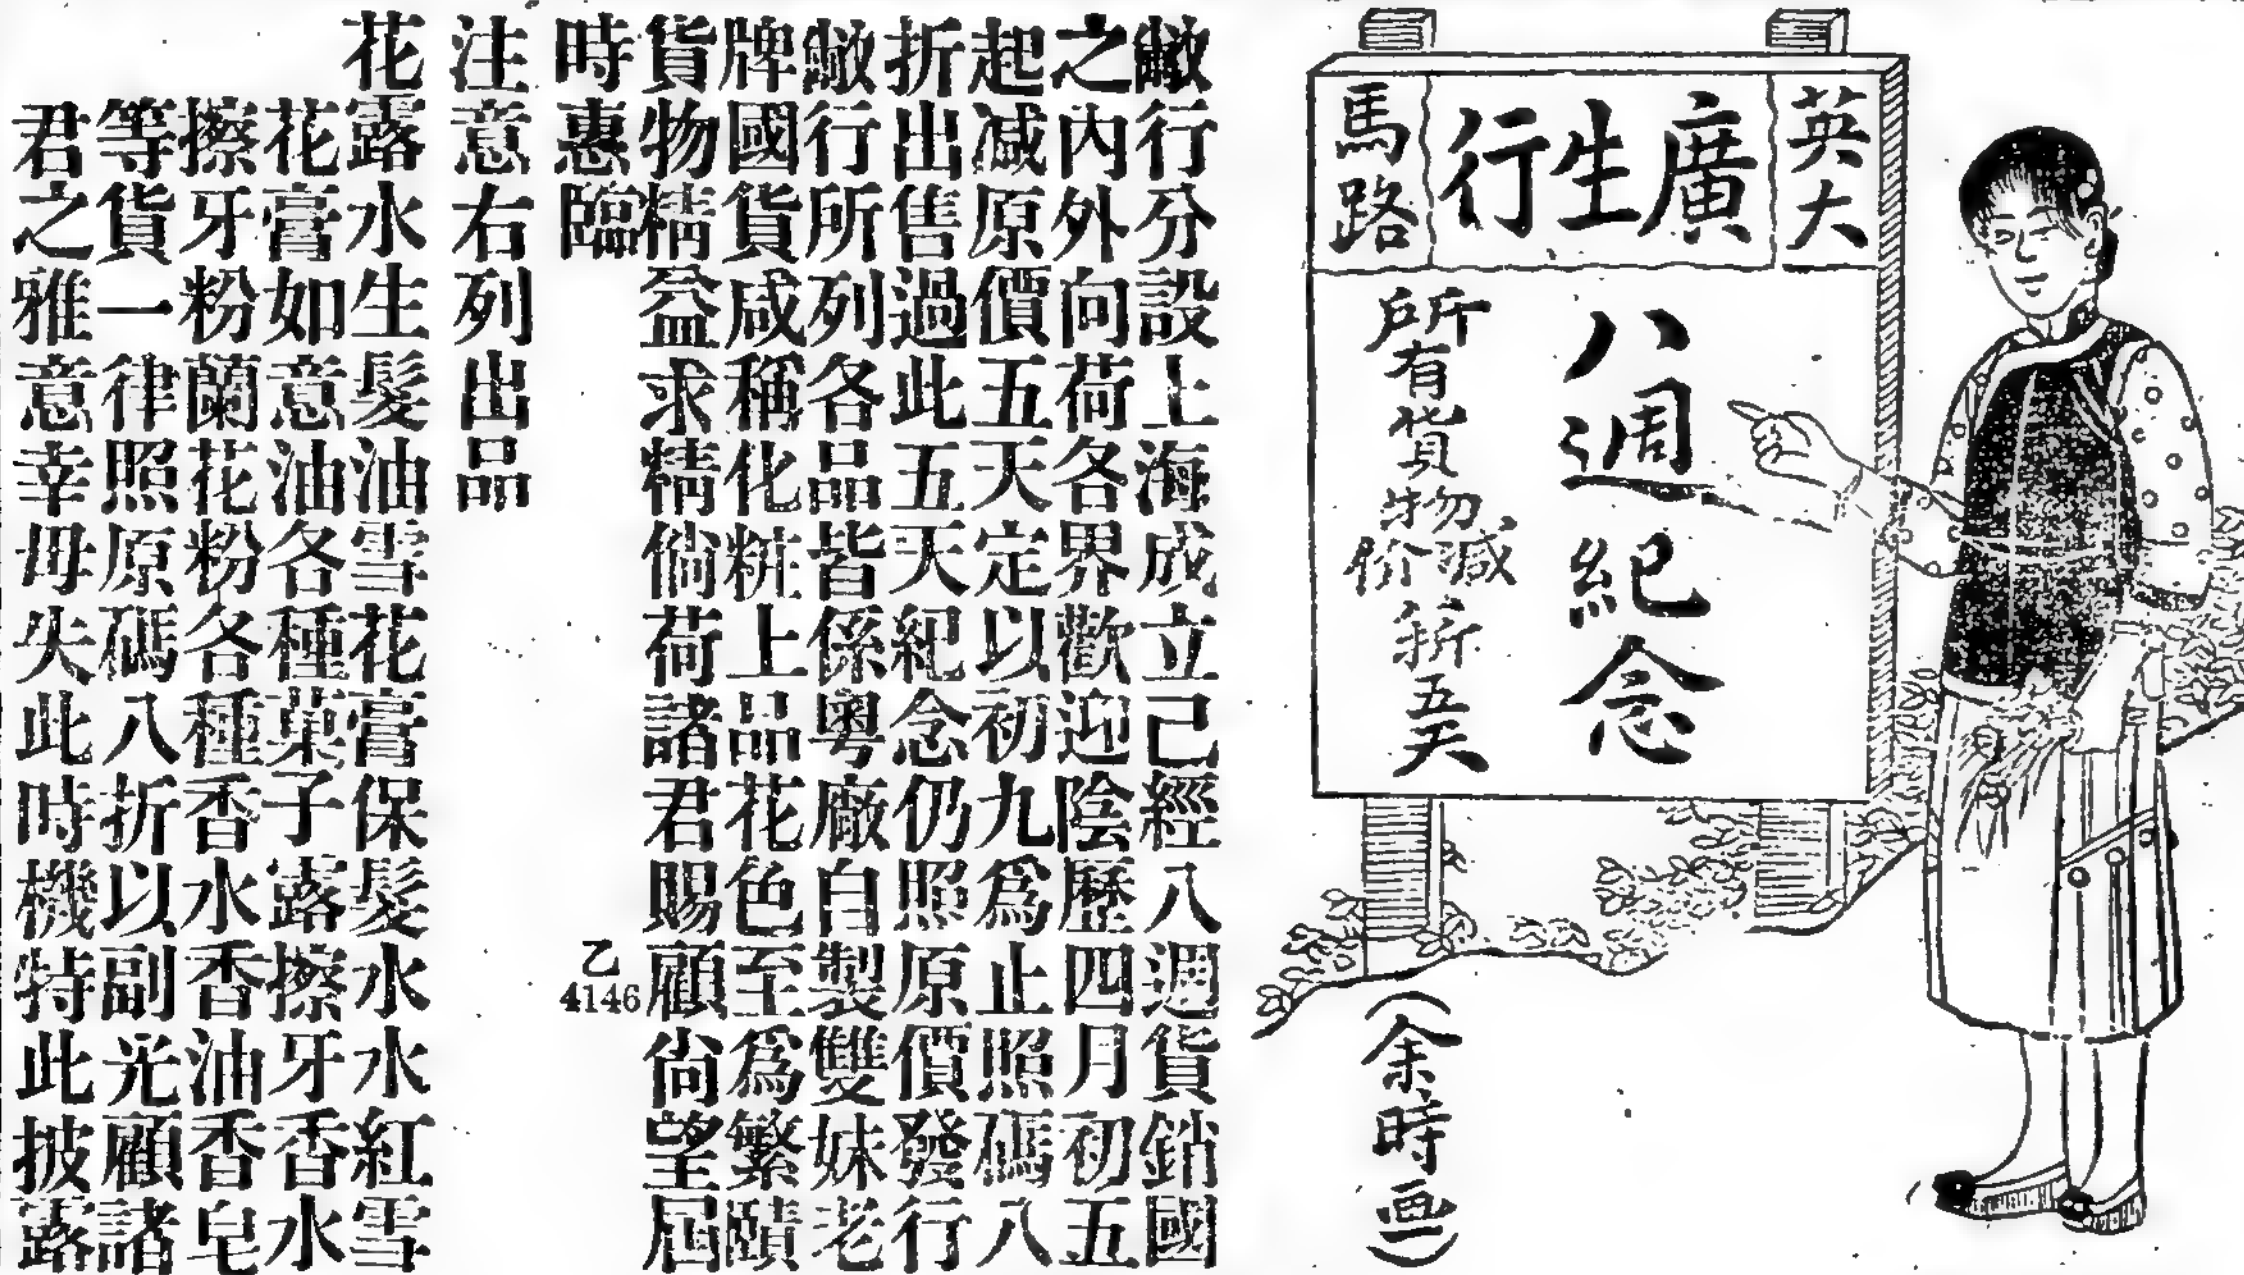 英大
廣生行
馬路
八週紀念
所有貨物减价八折五天
(余時画)
敝行分設上海成立己經八週貨銷國
之內外向荷各界歡迎陰歷四月初五
起减原價五天定以初九爲止照碼八
折出售過此五天紀念仍照原價發行
敝行所列各品皆係粤廠自製雙妹老
牌國貨咸稱化粧上品花色至爲繁賾
貨物精益求精倘荷諸君賜顧尙望屆
時惠臨
乙4146
注意右列出品
花露水生髮油雪花膏保髮水水紅雪
花膏如意油各種菓子露擦牙香水
擦牙粉蘭花粉各種香水香油香皂
等貨一律照原碼八折以副光顧諸
君之雅意幸毋失此時機特此披露